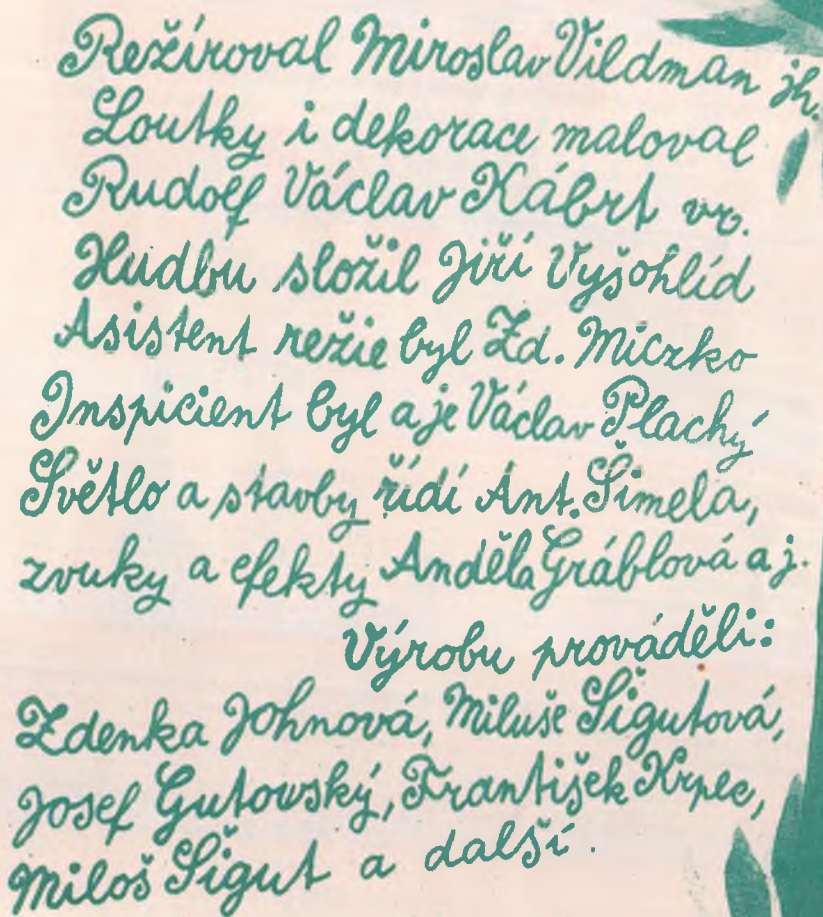 Režíroval Miroslav Vildman jh.
Loutky i dekorace maloval
Rudolf Václav Kábrt vr.
Hudbu složil Jiří Vyšohlíd
Asistent režie byl Zd. Miczko
Inspicient byl a je Václav Plachý
Světlo a stavby řídí Ant. Šimela,
zvuky a efekty Anděla Gráblová aj.
Výrobu prováděli:
Zdenka Johnová, Miluše Šigutová,
Josef Gutowský, František Krpec,
Miloš Šigut a další.